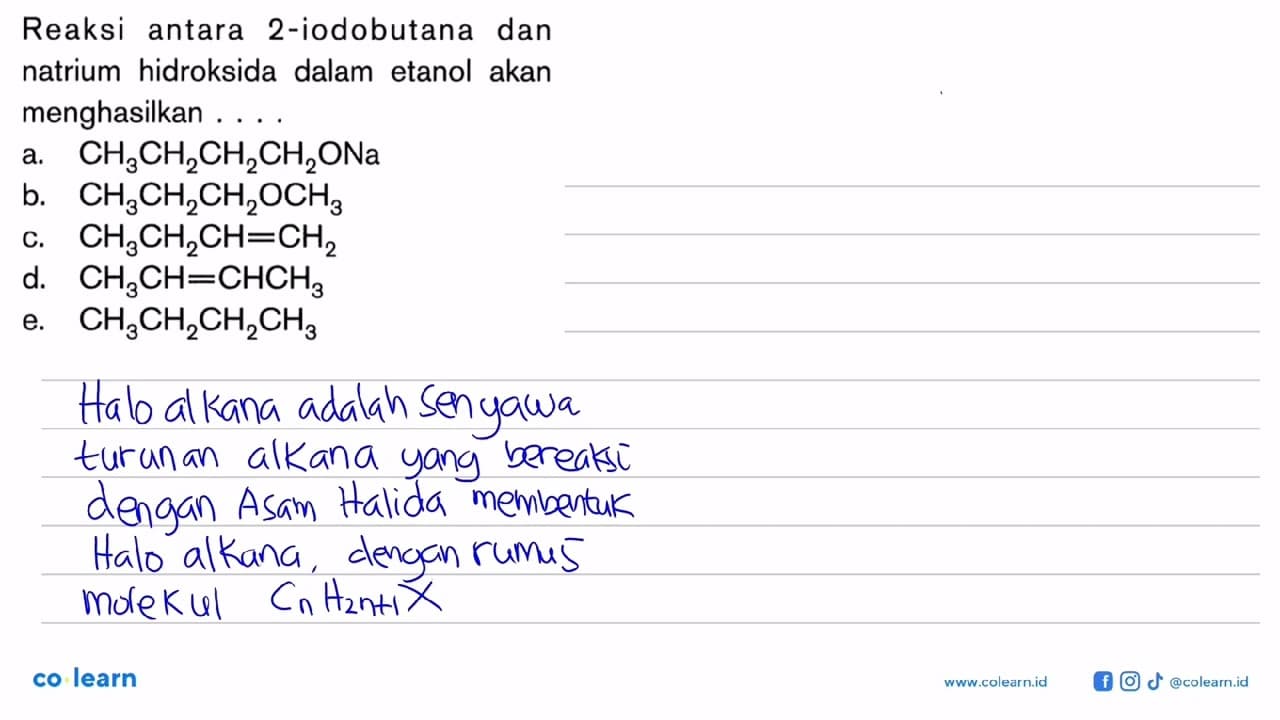 Reaksi antara 2-iodobutana dan
natrium hidroksida dalam etanol akan
menghasilkan . . . .
a. CH₃CH₂CH₂CH₂ONa
b. CH₃CH₂CH₂OCH₃
c. CH₃CH₂CH=CH₂
d. CH₃CH=CHCH₃
e. CH₃CH₂CH₂CH₃
Halo alkana adalah senyawa
turunan alkana yang bereaksi
dengan Asam Halida membentuk
Halo alkana, dengan rumus
molekul CₙH₂ₙ₊₁X
co learn
www.colearn.id
@colearn.id